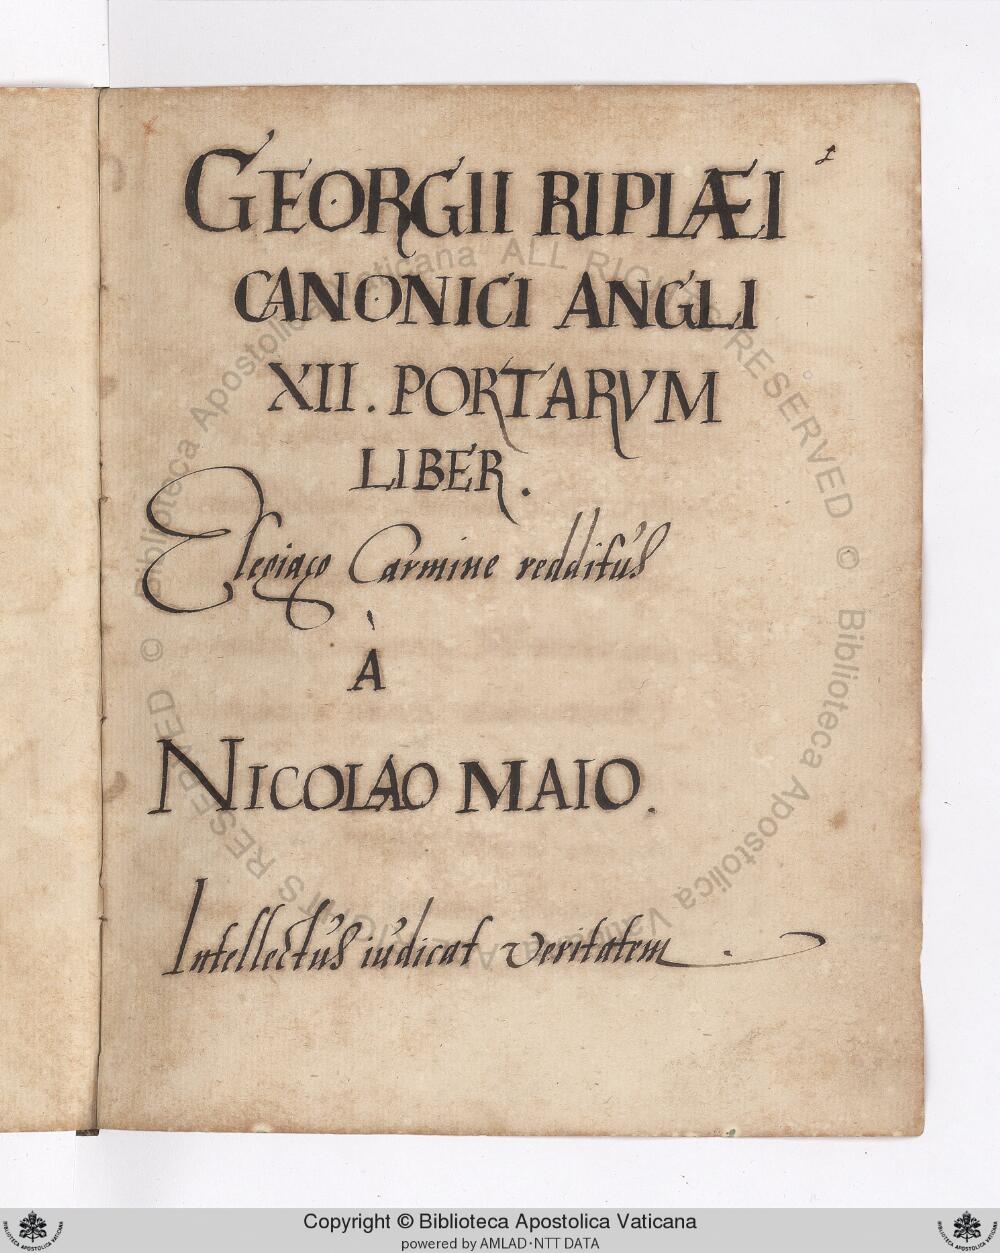 1
GEORGII RIPLÆI
CANONICI ANGLI
XII. PORTARVM
LIBER.
Elegiaco Carmine redditus
À
NICOLAO MAIO.
Intellectus iudicat veritatem.
© Biblioteca Apostolica Vaticana ALL RIGHTS RESERVED © Biblioteca Apostolica Vaticana ALL RIGHTS RESERVED
Copyright © Biblioteca Apostolica Vaticana
powered by AMLAD·NTT DATA
BIBLIOTECA APOSTOLICA VATICANA
BIBLIOTECA APOSTOLICA VATICANA